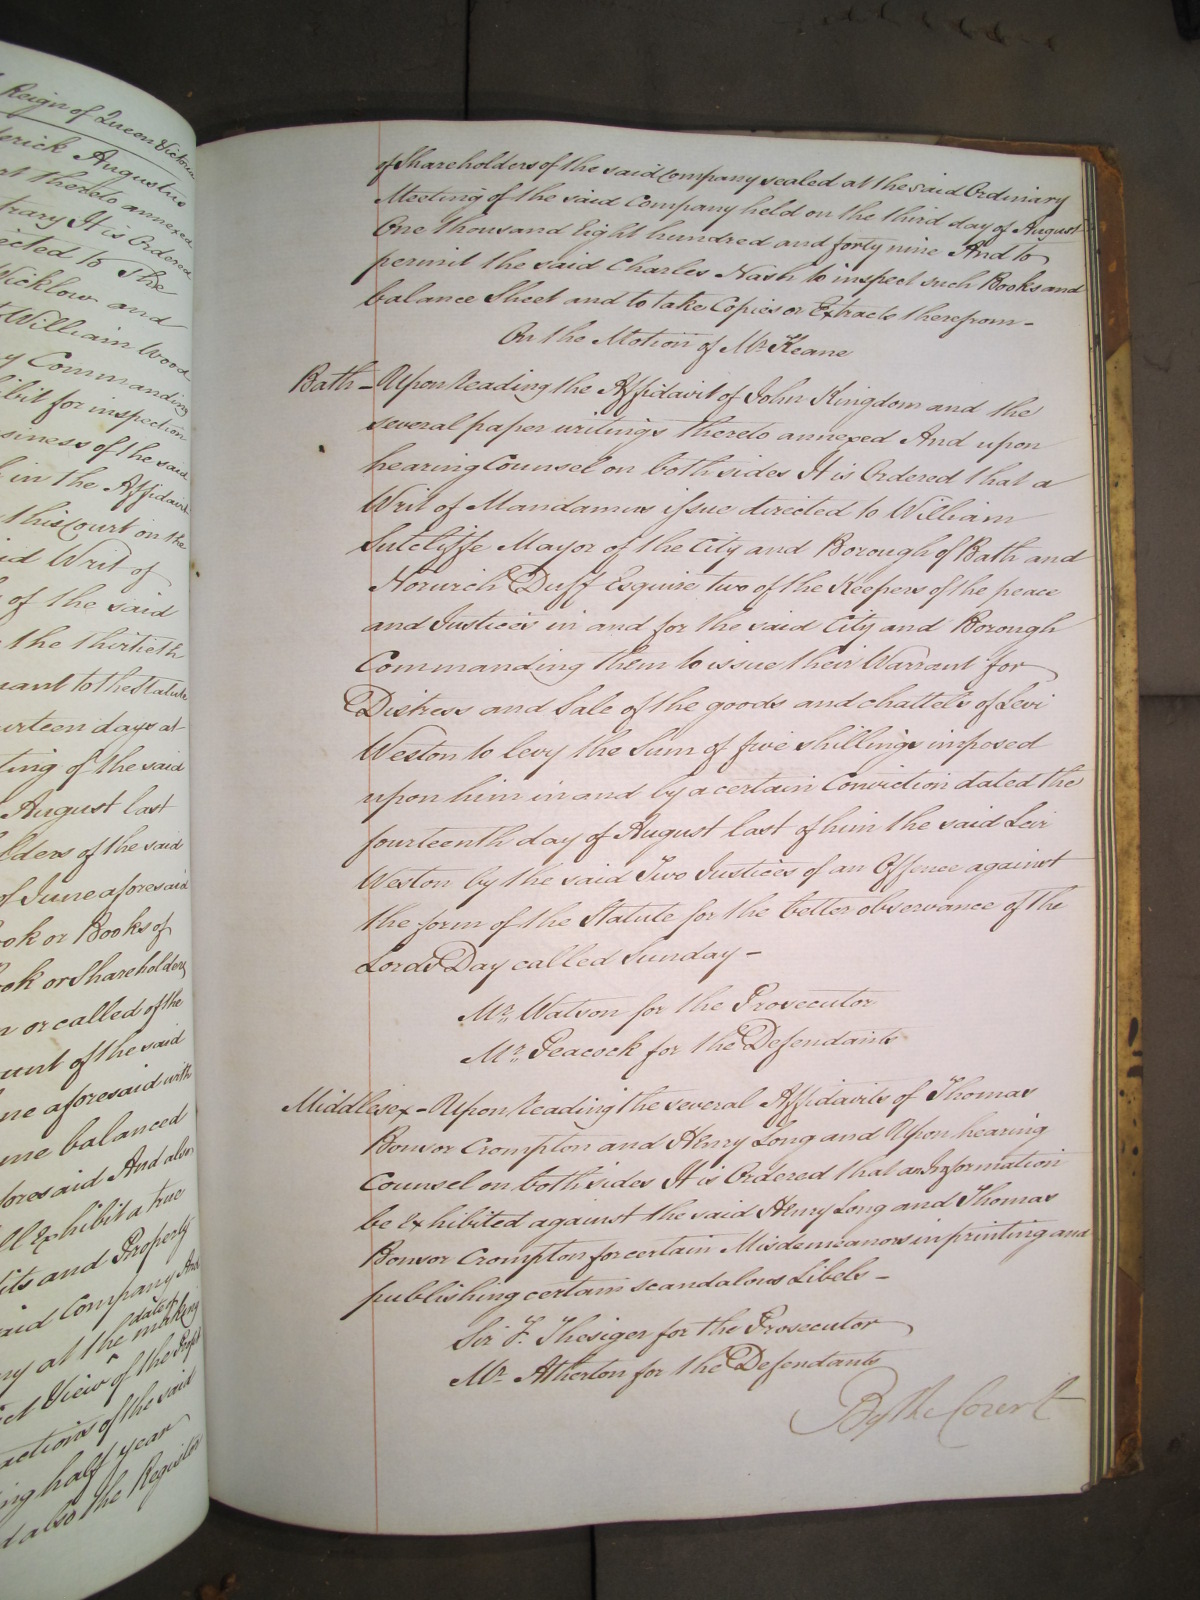 Reign of Queen Victoria
derick Augustus
thereto annexed
trary It is Ordered
ected to the
Wicklow and
William Wood
Commanding
bit for inspection
siness of the said
in the Affidavit
this Court on the
id Writ of
of the said
the thirtieth
uant to the Statute
urteen days at
ting of the said
August last
lders of the said
of June aforesaid
ook or Books of
ook or Shareholders
or called of the
unt of the said
ne aforesaid with
me balanced
foresaid And also
ll Exhibit a true
its and Property
aid Company And
ny at the date of making
ct View of the Profit
actions of the said
ing half year
d also the Register
of Shareholders of the said Company sealed at the said Ordinary
Meeting of the said Company held on the third day of August
One thousand Eight hundred and forty nine And to
permit the said Charles Nash to inspect such Books and
balance Sheet and to take Copies or Extracts therefrom -
On the Motion of Mr Keane
Bath - Upon reading the Affidavit of John Kingdom and the
several paper writings thereto annexed And upon
hearing Counsel on both sides It is Ordered that a
Writ of Mandamus issue directed to William
Sutcliffe Mayor of the City and Borough of Bath and
Norwich Duff Esquire two of the Keepers of the peace
and Justices in and for the said City and Borough
Commanding them to issue their Warrant for
Distress and Sale of the goods and chattels of Levi
Weston to levy the Sum of five shillings imposed
upon him in and by a certain Conviction dated the
fourteenth day of August last of him the said Levi
Weston by the said Two Justices of an Offence against
the form of the Statute for the better observance of the
Lord's Day called Sunday -
Mr. Watson for the Prosecutor
Mr. Peacock for the Defendants
Middlesex - Upon reading the several Affidavits of Thomas
Bonsor Crompton and Henry Long and Upon hearing
Counsel on both sides It is Ordered that an Information
be Exhibited against the said Henry Long and Thomas
Bonsor Crompton for certain Misdemeanors in printing and
publishing certain scandalous Libels -
Sir F. Thesiger for the Prosecutor
Mr. Atherton for the Defendants
By the Court